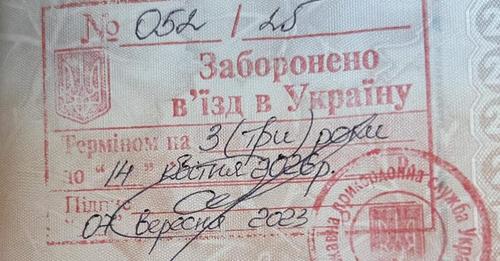 № 052 / 25
Заборонено
в'їзд в Україну
Терміном на 3 (три) роки
до "14" квітня 2026р.
Підп
07 вересня 2023
Прикордонна Служба Украї